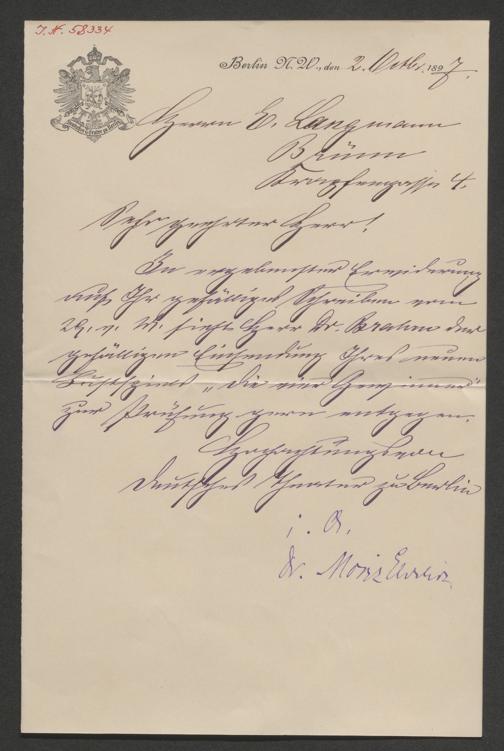 I.N. 58334
Berlin N.W., den 2. Octb. 1897.
Herrn E. Langmann
Brünn
Krapfengasse 4.
Sehr geehrter Herr!
In ergebenster Erwiderung
auf Ihr gefälliges Schreiben vom
29. v. M. sieht Herr Dr. Brahm der
gefälligen Einsendung Ihres neuen
Lustspiels „Die vier Gewinner"
zur Prüfung gern entgegen.
Hochachtungsvoll
Deutsches Theater zu Berlin
i. A.
Dr. Moriz Ehrlich